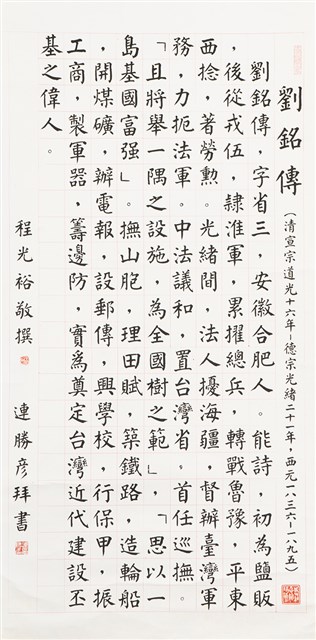 劉銘傳(清宣宗道光十六年–德宗光緒二十一年,西元一八三六–一八九五)
劉銘傳,字省三,安徽合肥人。能詩,初為鹽販
,後從戎伍,隷淮軍,累擢總兵,轉戰魯豫,平東
西捻,著勞勳。光緒間,法人擾海疆,督辦臺灣軍
務,力扼法軍。中法議和,置台灣省。首任巡撫。
「且將舉一隅之設施,為全國樹之範」,「思以一
島基國富强」。撫山胞,理田賦,築鐵路,造輪船
,開煤礦,辦電報,設郵傳,興學校,行保甲,振
工商,製軍器,籌邊防,實為奠定台灣近代建設丕
基之偉人。
程光裕敬撰 連勝彥拜書